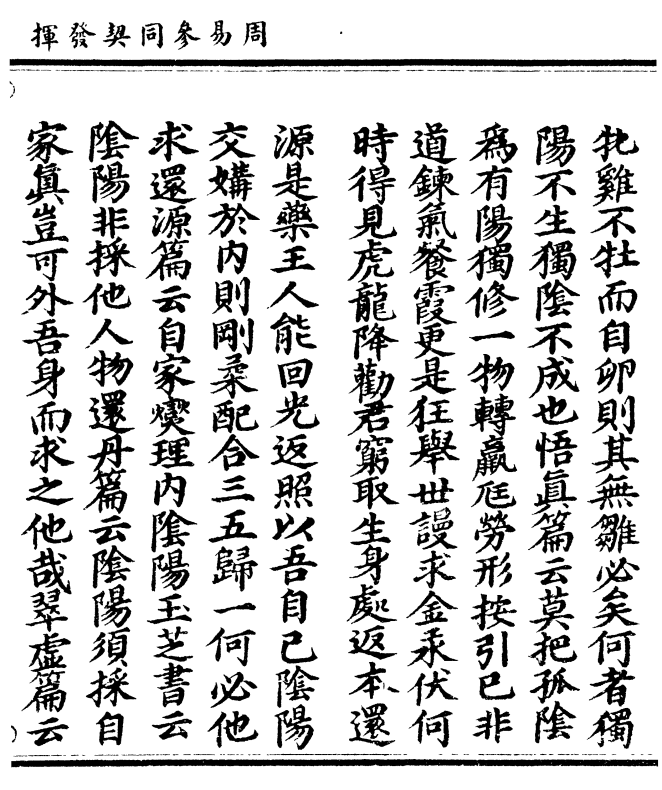 周易參同契發揮
牝雞不牡而自卵則其無雛必矣何者獨
陽不生獨陰不成也悟眞篇云莫把孤陰
爲有陽獨修一物轉羸尫勞形按引已非
道鍊氣餐霞更是狂舉世謾求金汞伏何
時得見虎龍降勸君窮取生身處返本還
源是藥王人能回光返照以吾自己陰陽
交媾於内則剛柔配合三五歸一何必他
求還源篇云自家燮理内陰陽玉芝書云
陰陽非採他人物還丹篇云陰陽須採自
家眞豈可外吾身而求之他哉翠虛篇云